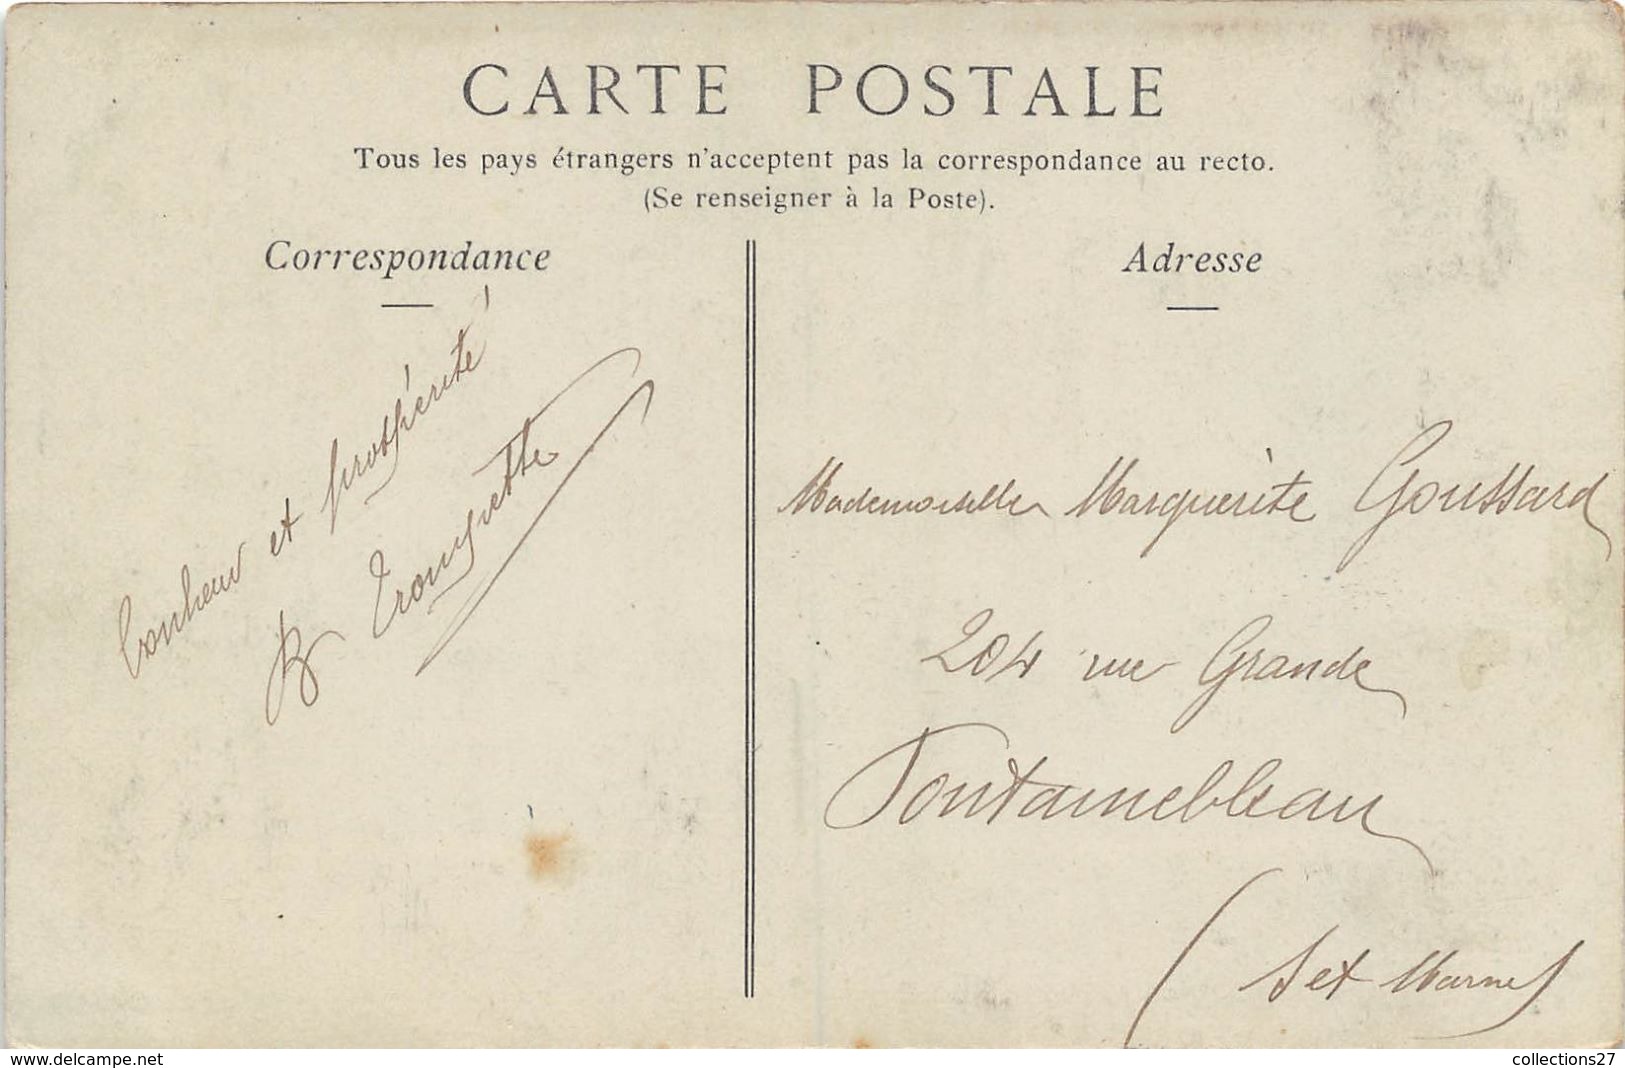 CARTE POSTALE
Tous les pays étrangers n'acceptent pas la correspondance au recto.
(Se renseigner à la Poste).
Correspondance
Bonheur et prospérité
B
Adresse
Mademoiselle Marguerite Goussard
204 rue Grande
Fontainebleau
(S et Marne)
www.delcampe.net
collections27